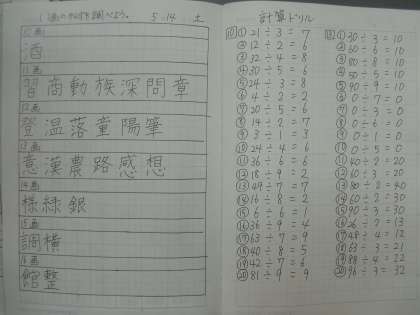 調べよう。 5 14 土
10画
酒
11画
習商動族深問章
12画
登温落童陽筆
13画
意漢農路感想
14画
様緑銀
15画
調横
16画
館整
計算ドリル
10 ① 21 ÷ 3 = 7
② 12 ÷ 2 = 6
③ 32 ÷ 4 = 8
④ 30 ÷ 5 = 6
⑤ 24 ÷ 3 = 8
⑥ 4 ÷ 2 = 2
⑦ 20 ÷ 5 =
⑧ 14 ÷ 2 = 7
⑨ 3 ÷ 1 = 3
⑩ 24 ÷ 4 = 6
⑪ 36 ÷ 6 = 6
⑫ 18 ÷ 9 = 2
⑬ 49 ÷ 7 = 7
⑭ 16 ÷ 8 = 2
⑮ 6 ÷ 6 = 1
⑯ 36 ÷ 9 = 4
⑰ 63 ÷ 7 = 9
⑱ 40 ÷ 8 = 5
⑲ 42 ÷ 7 = 6
⑳ 81 ÷ 9 = 9
① 30 ÷ 3 = 10
② 60 ÷ 6 = 10
③ 80 ÷ 8 = 10
④ 50 ÷ 5 = 10
⑤ 90 ÷ 9 = 10
⑥ 0 ÷ 7 = 0
⑦ 0 ÷ 3 = 0
⑧ 0 ÷ 6 = 0
⑨ 0 ÷ 1 = 0
⑩ 0 ÷ 5 = 0
⑪ 40 ÷ 2 = 20
⑫ 60 ÷ 3 = 20
⑬ 80 ÷ 2 = 40
⑭ 60 ÷ 2 = 30
⑮ 90 ÷ 3 = 30
⑯ 26 ÷ 2 = 13
⑰ 48 ÷ 4 = 12
⑱ 63 ÷ 3 = 21
⑲ 88 ÷ 4 = 22
⑳ 96 ÷ 3 = 32